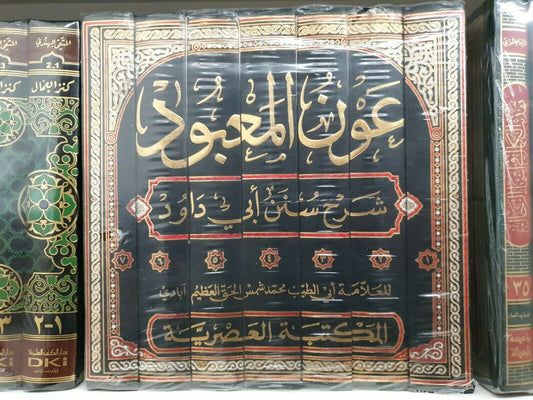 عون المعبود
شرح سنن أبي داود
١ ٢ ٣ ٤ ٥ ٦ ٧
للعلامة أبي الطيب محمد شمس الحق العظيم آبادي
المكتبة العصرية
كنز العمال
٢-١
٣
دار الكتب العلمية
DKi
٣٥